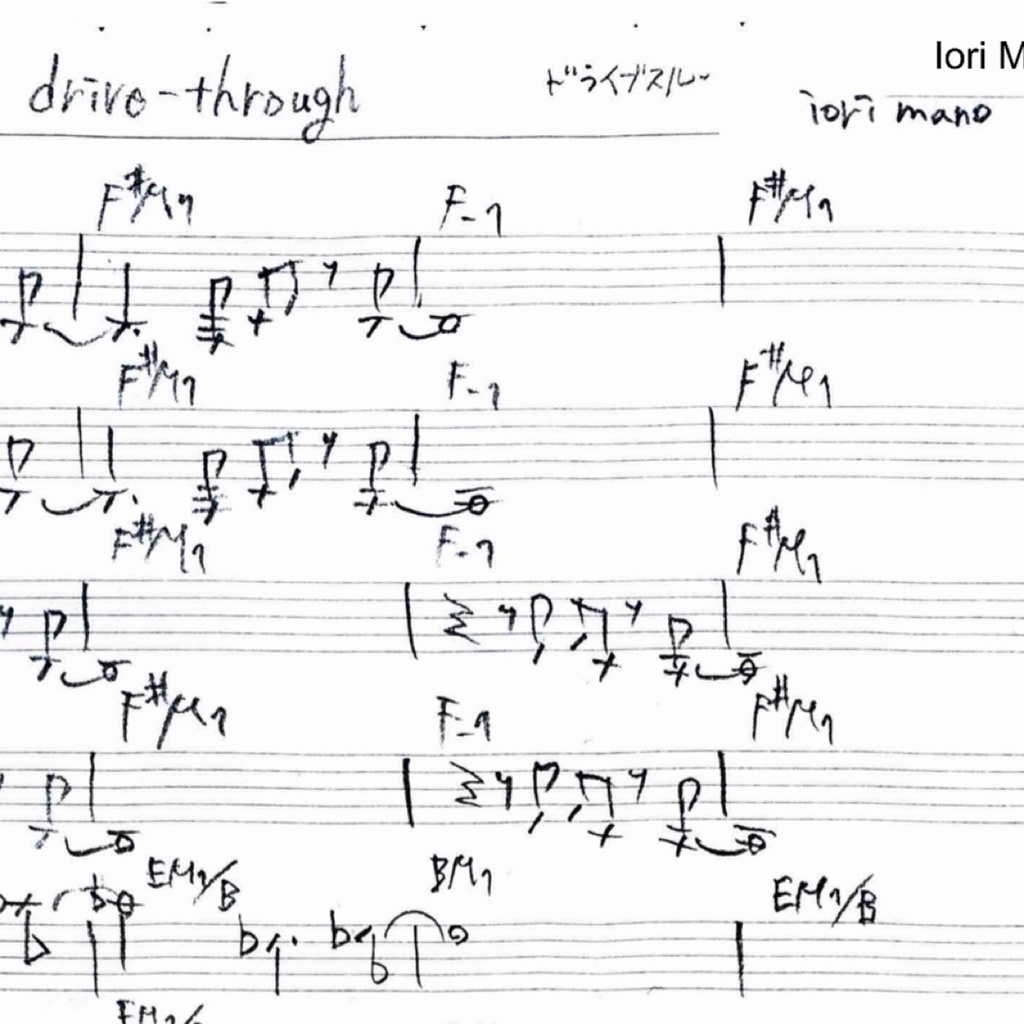 Iori M
drive-through ドライブスルー iori mano
F#M7 F-7 F#M7
F#M7 F-7 F#M7
F#M7 F-7 F#M7
F#M7 F-7 F#M7
EM7/B BM7 EM7/B